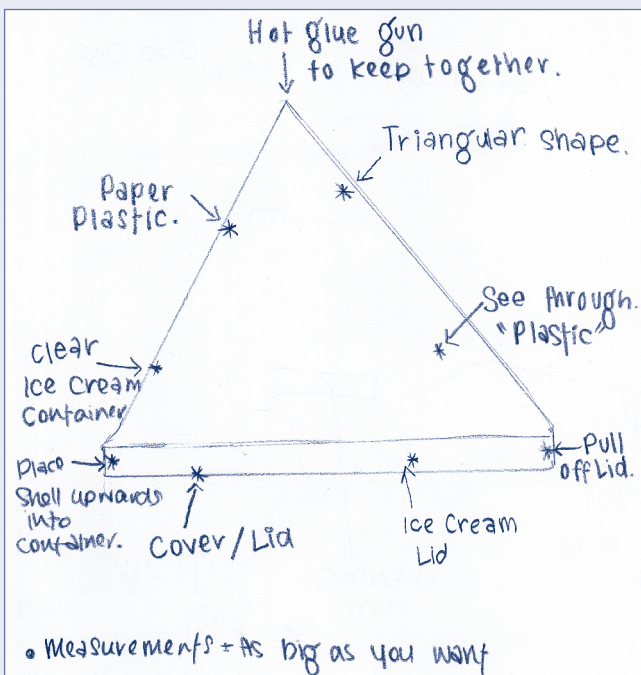 Hot glue gun
to keep together.
Triangular shape.
Paper
Plastic.
See through.
"Plastic"
Clear
Ice Cream
Container
Pull
off Lid.
Place
Shell upwards
into
container.
Cover/Lid
Ice Cream
Lid
• Measurements - As big as you want